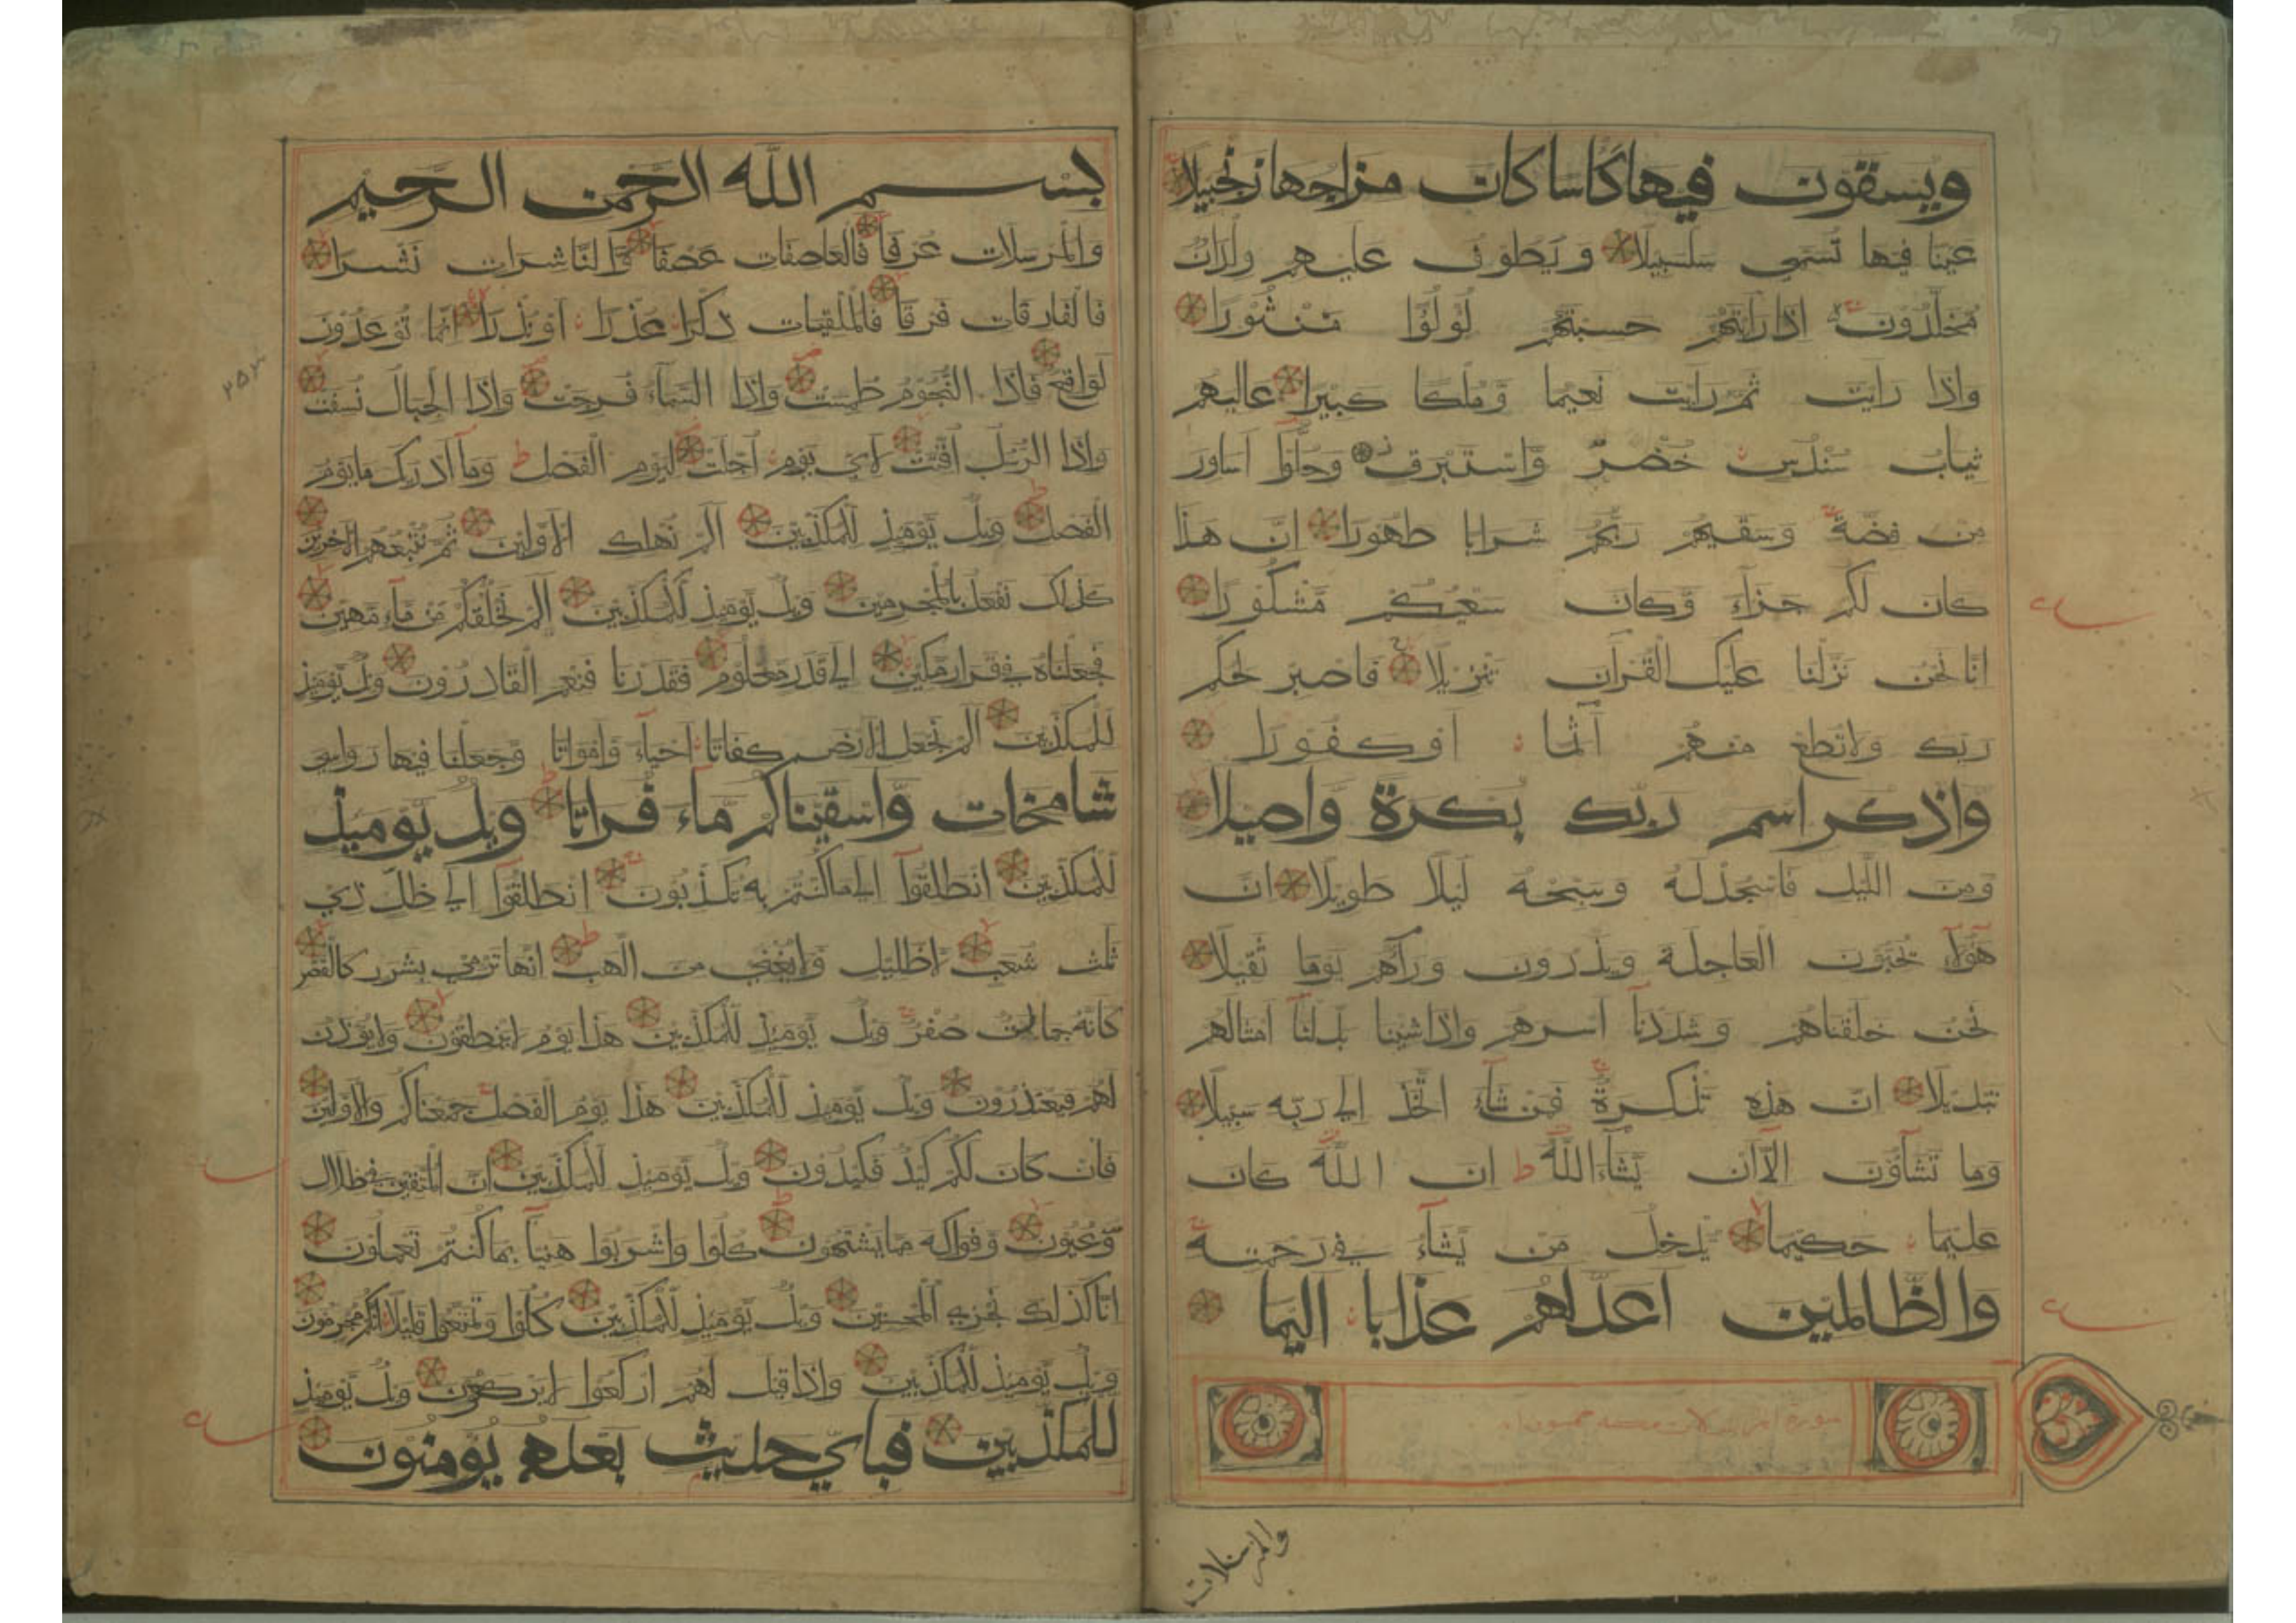 ويسقون فيها كاسا كان مزاجها زنجبيلا
عينا فيها تسمى سلسبيلا ويطوف عليهم ولدان
مخلدون اذا رايتهم حسبتهم لولوا منثورا
واذا رايت ثم رايت نعيما وملكا كبيرا عاليهم
ثياب سندس خضر واستبرق وحلوا اساور
من فضة وسقيهم ربهم شرابا طهورا ان هذا
كان لكم جزاء وكان سعيكم مشكورا
انا نحن نزلنا عليك القران تنزيلا فاصبر لحكم
ربك ولا تطع منهم آثما او كفورا
واذكر اسم ربك بكرة واصيلا
ومن الليل فاسجد له وسبحه ليلا طويلا ان
هولاء يحبون العاجلة ويذرون ورآهم يوما ثقيلا
نحن خلقناهم وشددنا اسرهم واذا شينا بدلنا امثالهم
تبديلا ان هذه تذكرة فمن شاء اتخذ الى ربه سبيلا
وما تشآون الا ان يشاء الله ط ان الله كان
عليما حكيما يدخل من يشاء في رحمته
والظالمين اعد لهم عذابا اليما
والمرسلات
بسم الله الرحمن الرحيم
والمرسلات عرفا فالعاصفات عصفا والناشرات نشرا
فالفارقات فرقا فالملقيات ذكرا عذرا او نذرا انما توعدون
لواقع فاذا النجوم طمست واذا السماء فرجت واذا الجبال نسفت
واذا الرسل اقتت لاي يوم اجلت ليوم الفصل ط وما ادريك ما يوم
الفصل ويل يوميذ للمكذبين الم نهلك الاولين ثم نتبعهم الاخرين
كذلك نفعل بالمجرمين ويل يوميذ للمكذبين الم نخلقكم من ماء مهين
فجعلناه في قرار مكين الى قدر معلوم فقدرنا فنعم القادرون ويل يوميذ
للمكذبين الم نجعل الارض كفاتا احياء وامواتا وجعلنا فيها رواسي
شامخات واسقيناكم ماء فراتا ويل يوميذ
للمكذبين انطلقوا الى ما كنتم به تكذبون انطلقوا الى ظل ذي
ثلث شعب لا ظليل ولا يغني من اللهب انها ترمي بشرر كالقصر
كانه جمالت صفر ويل يوميذ للمكذبين هذا يوم لا ينطقون ولا يوذن
لهم فيعتذرون ويل يوميذ للمكذبين هذا يوم الفصل جمعناكم والاولين
فان كان لكم كيد فكيدون ويل يوميذ للمكذبين ان المتقين في ظلال
وعيون وفواكه مما يشتهون كلوا واشربوا هنيا بما كنتم تعملون
انا كذلك نجزي المحسنين ويل يوميذ للمكذبين كلوا وتمتعوا قليلا انكم مجرمون
ويل يوميذ للمكذبين واذا قيل لهم اركعوا لا يركعون ويل يوميذ
للمكذبين فباي حديث بعده يومنون